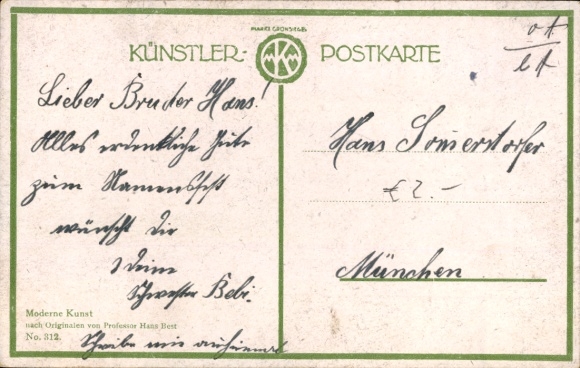 KÜNSTLER-POSTKARTE
Lieber Bruder Hans!
Alles erdenkliche Gute
zum Namensfest
wünscht dir
Deine
Schwester Bebi.
Schreibe mir auch
Hans
£2.-
München
Moderne Kunst
nach Originalen von Professor Hans Best
No. 312.